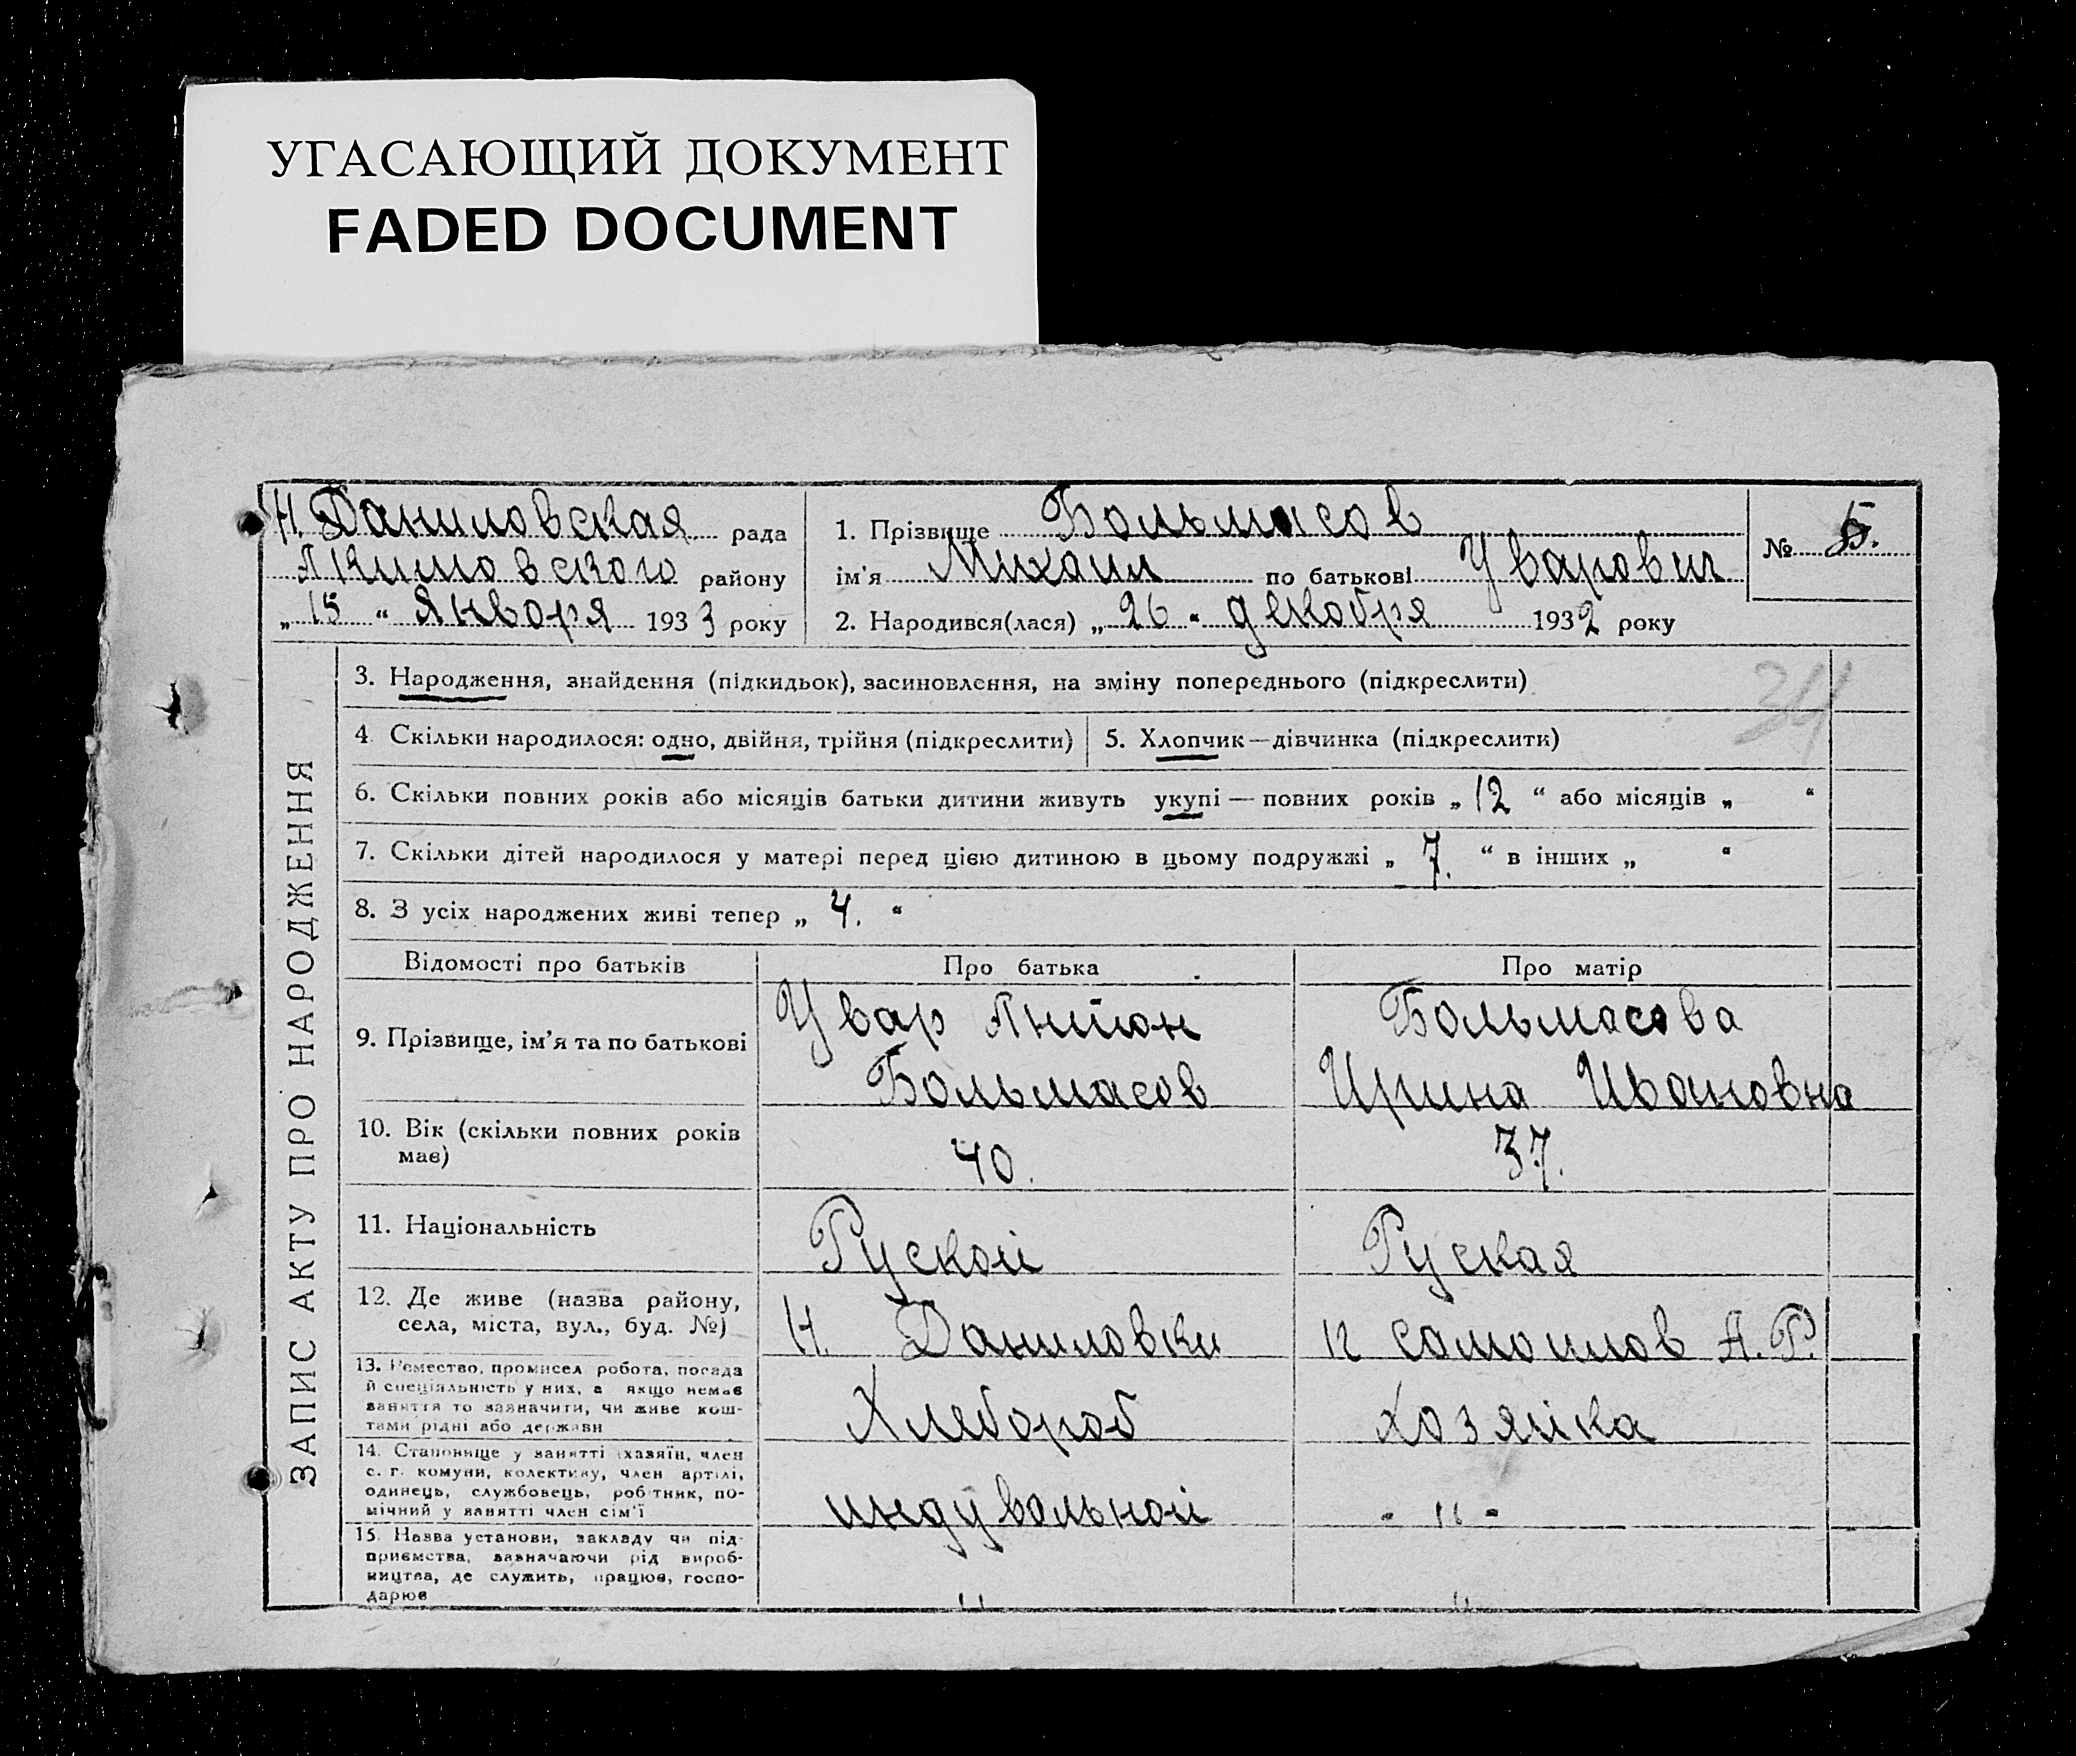 УГАСАЮЩИЙ ДОКУМЕНТ
FADED DOCUMENT
Н. Даниловская рада
Акимовского району
„ 15 “ Января 1933 року
1. Прізвище Больмасов
ім'я Михаил по батькові Уварович
№ 5.
2. Народився(лася) „ 26 “ декабря 1932 року
ЗАПИС АКТУ ПРО НАРОДЖЕННЯ
3. Народження, знайдення (підкидьок), засиновлення, на зміну попереднього (підкреслити)
34
4. Скільки народилося: одно, двійня, трійня (підкреслити)
5. Хлопчик—дівчинка (підкреслити)
6. Скільки повних років або місяців батьки дитини живуть укупі — повних років „ 12 “ або місяців „ “
7. Скільки дітей народилося у матері перед цією дитиною в цьому подружжі „ 7. “ в інших „ “
8. З усіх народжених живі тепер „ 4. “
Відомості про батьків
Про батька
Про матір
9. Прізвище, ім'я та по батькові
Увар Антон
Больмасов
Больмасова
Ирина Ивановна
10. Вік (скільки повних років
має)
40.
37.
11. Національність
Руской
Руская
12. Де живе (назва району,
села, міста, вул., буд. №)
Н. Даниловки
А. Р.
13. Ремество, промисел робота, посада
й спеціяльність у них, а якщо немає
заняття то зазначити, чи живе кош-
тами рідні або держави
Хлебороб
хозяйка
14. Становище у занятті (хазяїн, член
с. г. комуни, колективу, член артілі,
одинець, службовець, робітник, по-
мічний у занятті член сім'ї
индувальной
- „ -
15. Назва установи, закладу чи під-
приємства, зазначаючи рід вироб-
ництва, де служить, працює, госпо-
дарює
„
„